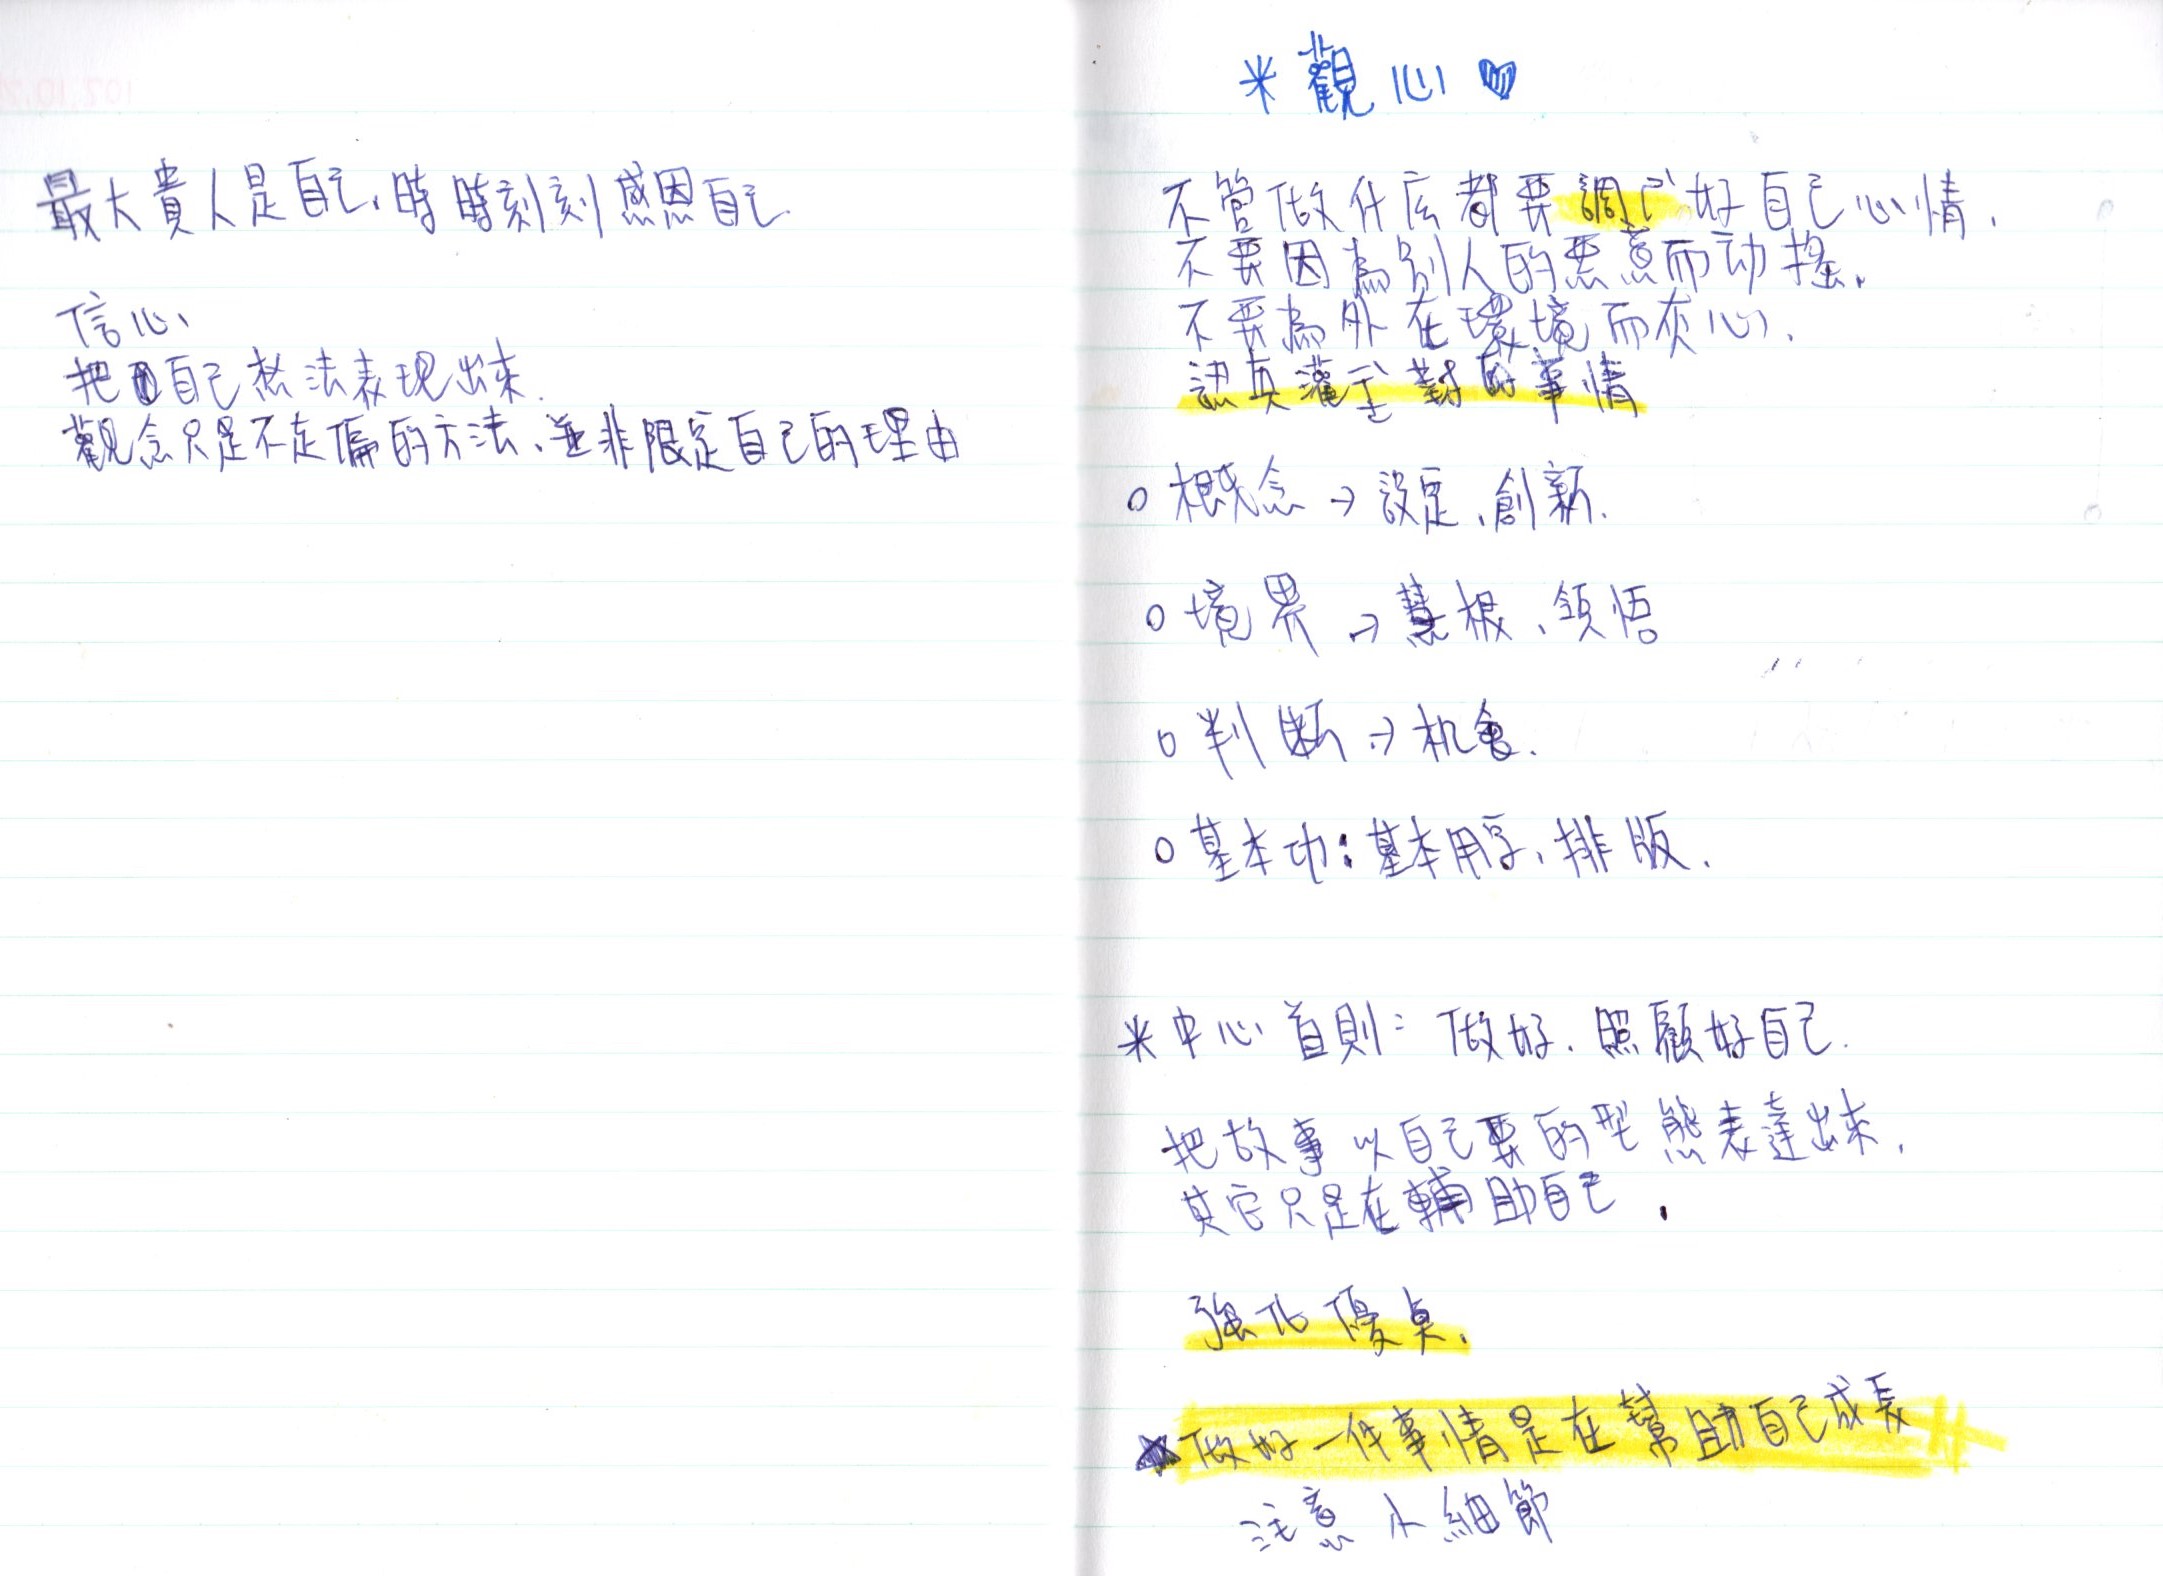 最大貴人是自己,時時刻刻感恩自己.
信心
把自己想法表現出來.
觀念只是不走偏的方法、並非限定自己的理由
米觀心♥
不管做什広都要調好自己心情.
不要因為別人的惡意而动搖.
不要為外在環境而灰心.
認真灌注對的事情
○概念→設定、創新.
○境界→慧根、領悟
○判斷→机會.
○基本功:基本用字、排版.
米中心首則:做好.照顧好自己.
把故事以自己要的型態表達出來.
其它只是在輔助自己.
強化優桌.
★做好一件事情是在幫助自己成長
注意小細節